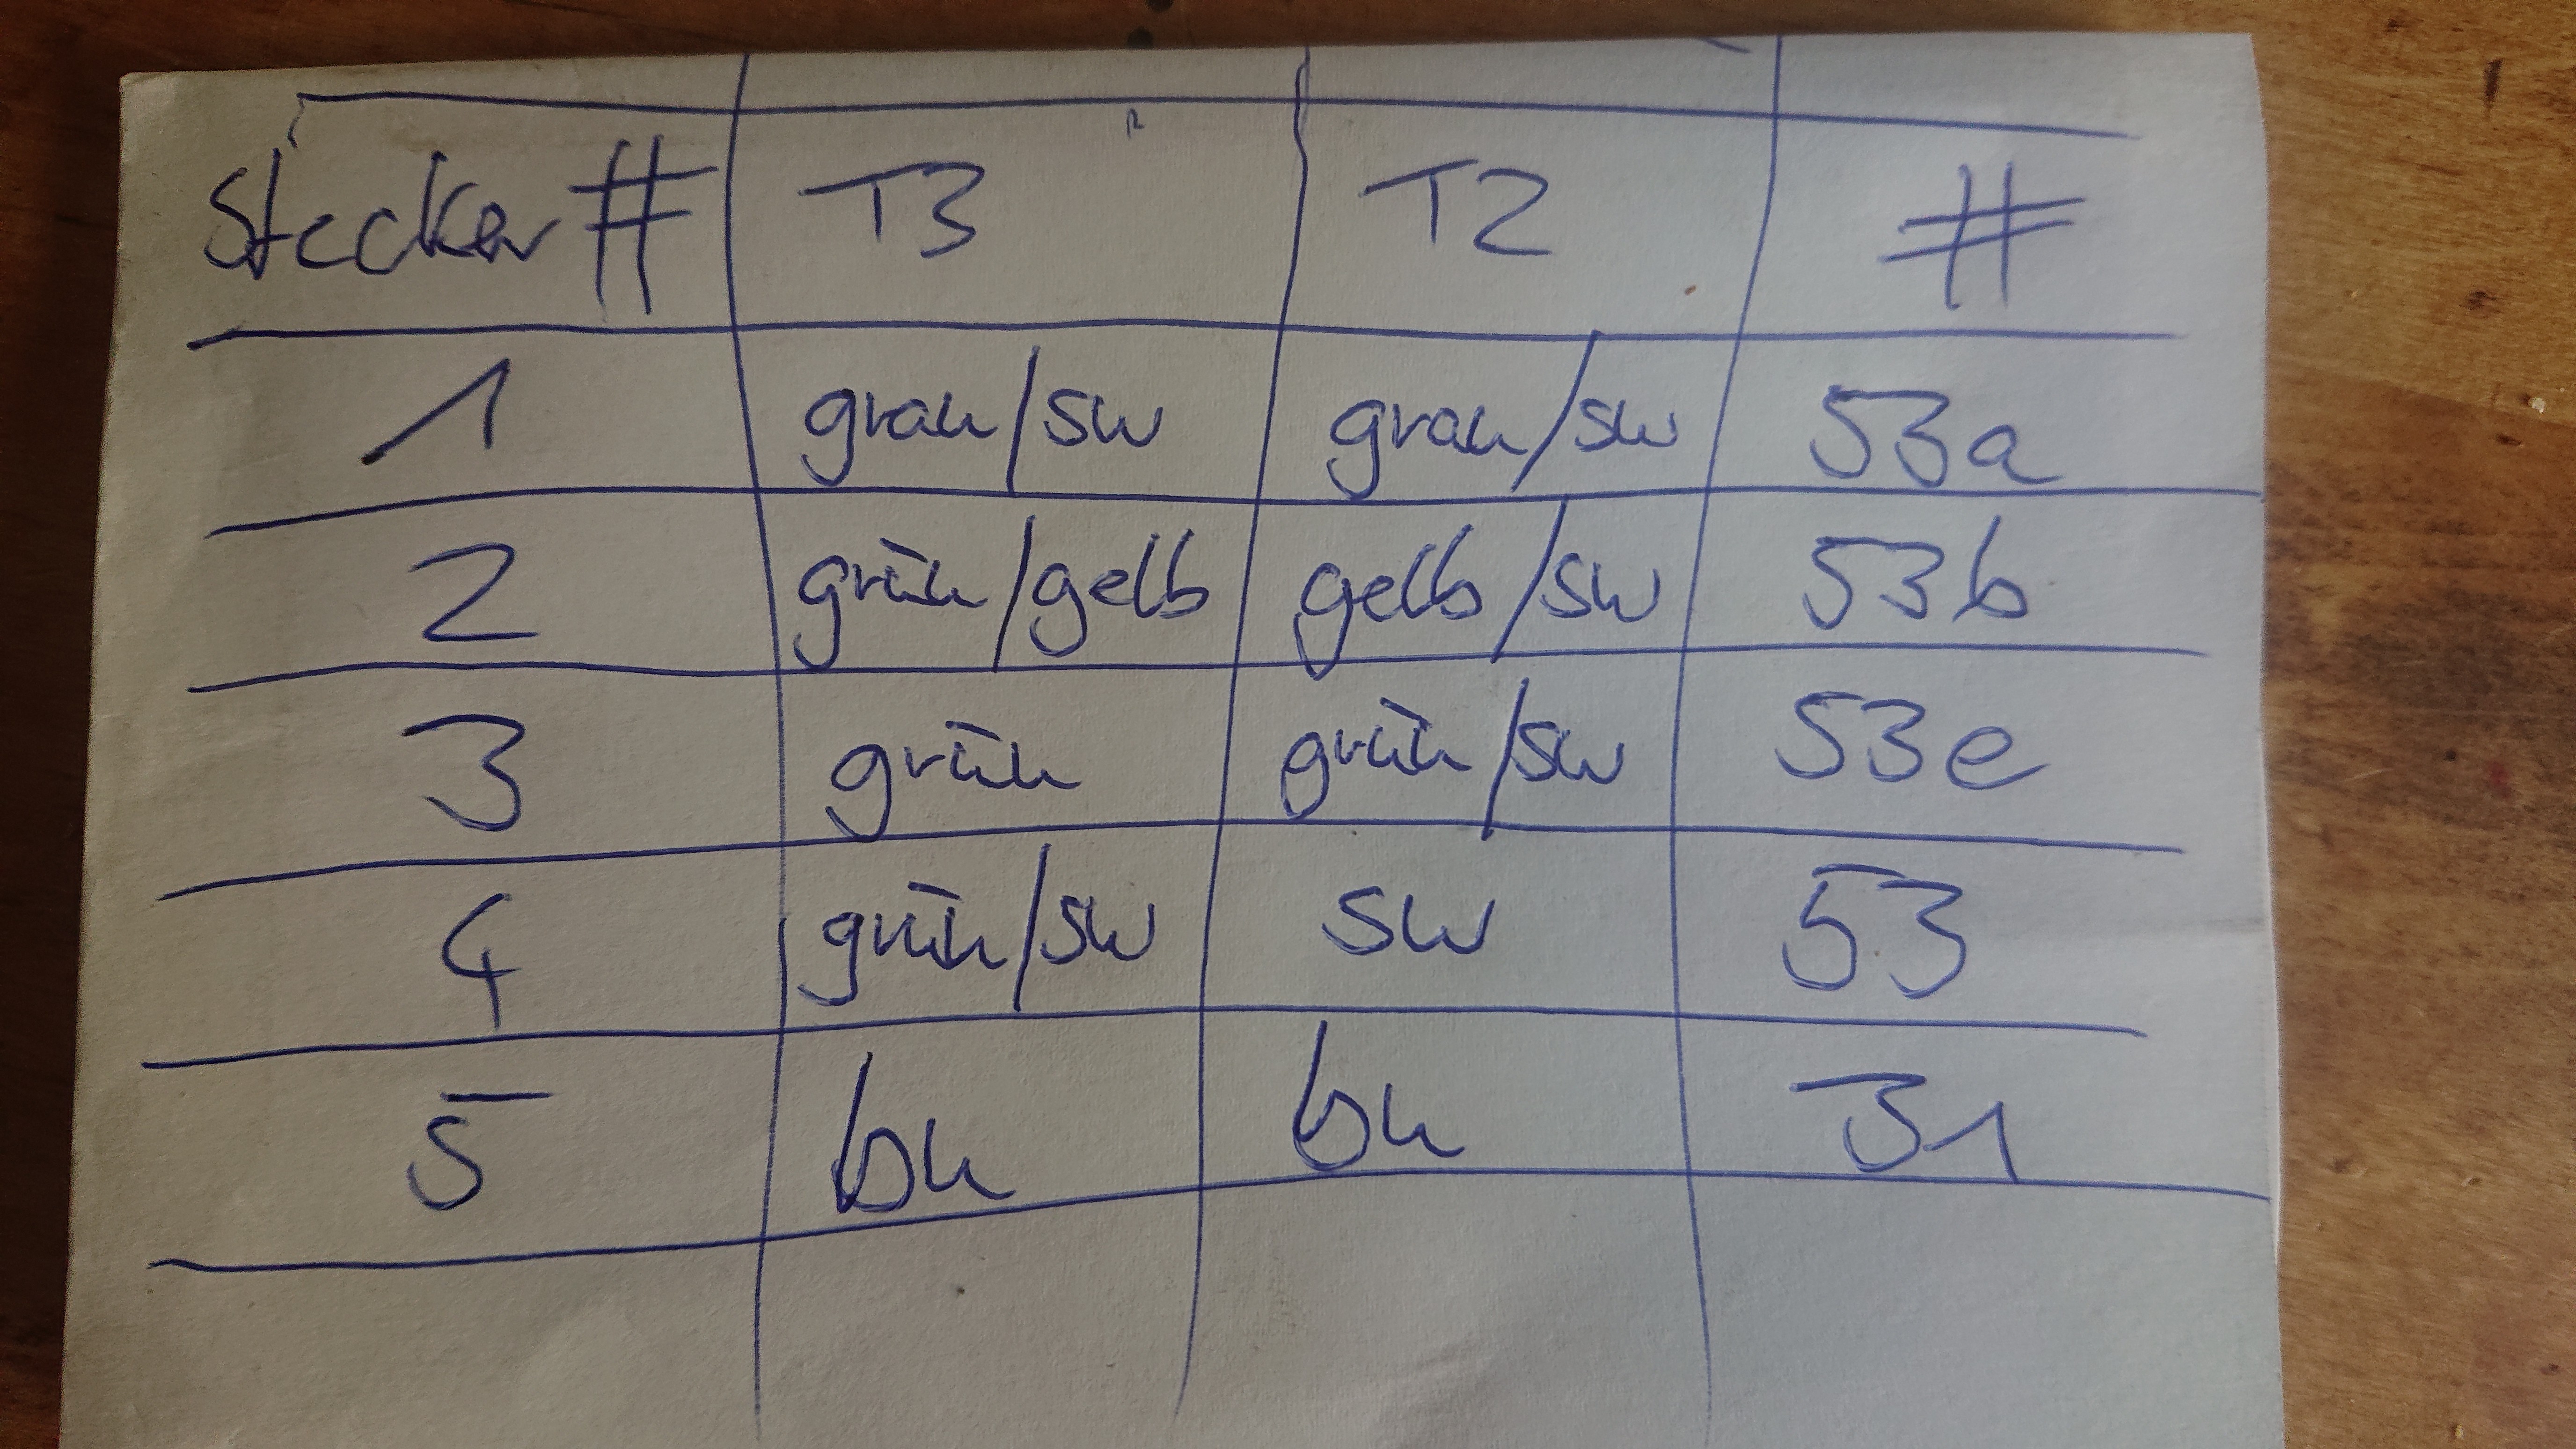 Stecker # T3 T2 #
1 grau/sw grau/sw 53a
2 grün/gelb gelb/sw 53b
3 grün grün/sw 53e
4 grün/sw sw 53
5 bn bn 31